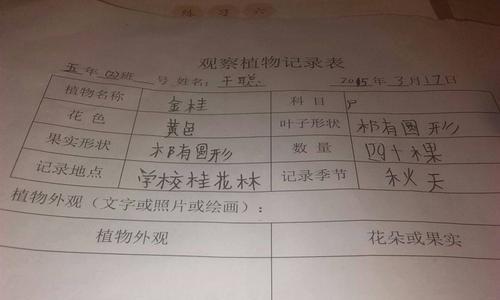 练习六
观察植物记录表
五年(2)班 号 姓名: 王聪 2015年3月17日
植物名称 金桂 科目 P
花色 黄色 叶子形状 椭圆形
果实形状 椭圆形 数量 四十棵
记录地点 学校桂花林 记录季节 秋天
植物外观(文字或照片或绘画):
植物外观 花朵或果实